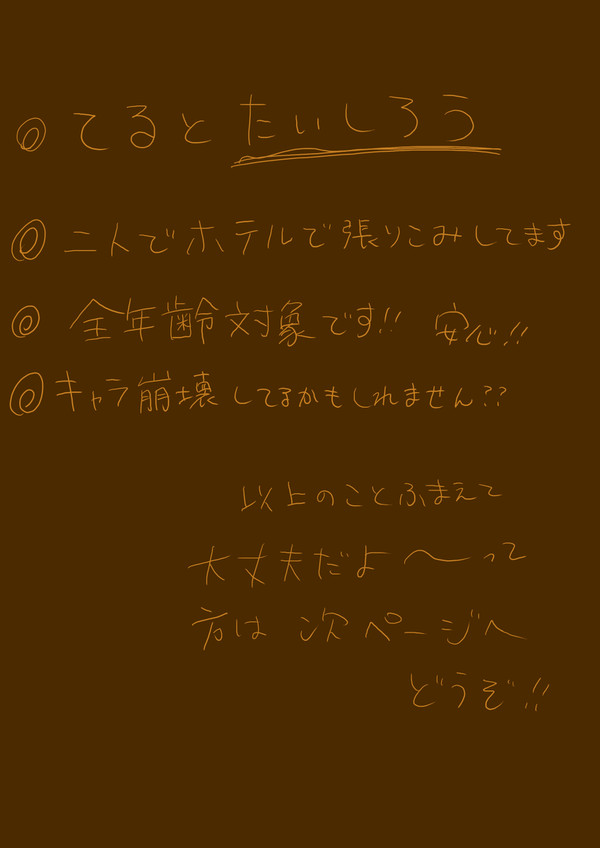 ◎ てるとたいしろう
◎ 二人でホテルで張りこみしてます
◎ 全年齢対象です!! 安心!!
◎ キャラ崩壊してるかもしれません??
以上のことふまえて
大丈夫だよ〜って
方は 次ページへ
どうぞ!!